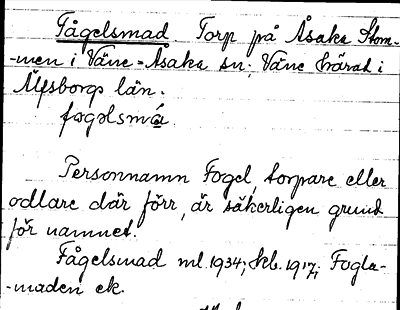 Fågelsmad. Torp på Åsaka Stom-
-men i Väne-Åsaka sn; Väne härad i
Älfsborgs län.
fogəlsmá.
Personnamn Fogel, torpare eller
odlare där förr, är säkerligen grund
för namnet.
Fågelsmad ml. 1934; skb. 1917; Fogla-
-maden ek.